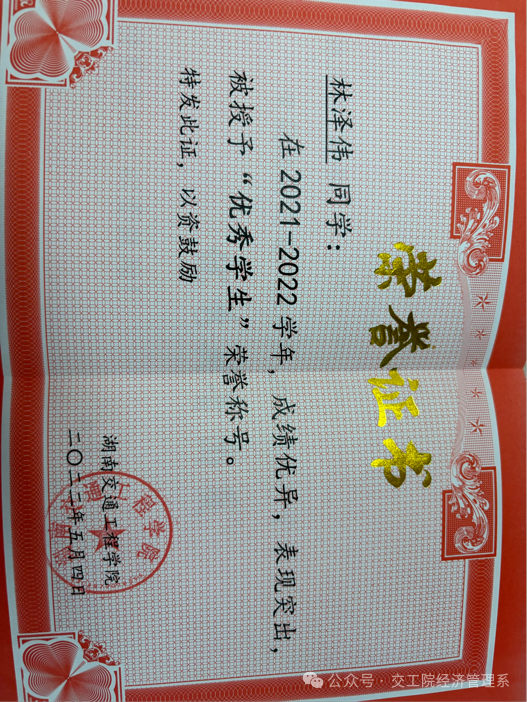 荣誉证书
林泽伟 同学：
在 2021-2022 学年，成绩优异，表现突出，
被授予“优秀学生”荣誉称号。
特发此证，以资鼓励
湖南交通工程学院
二〇二二年五月四日
公众号 · 交工院经济管理系